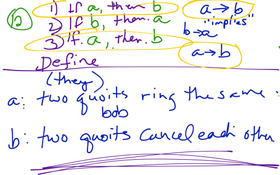 1) If a, then b a → b
"implies"
12 2) If b, then a b → a
3) If a, then b a → b
Define
(they)
a: two quoits ring the same
bob
b: two quoits cancel each other